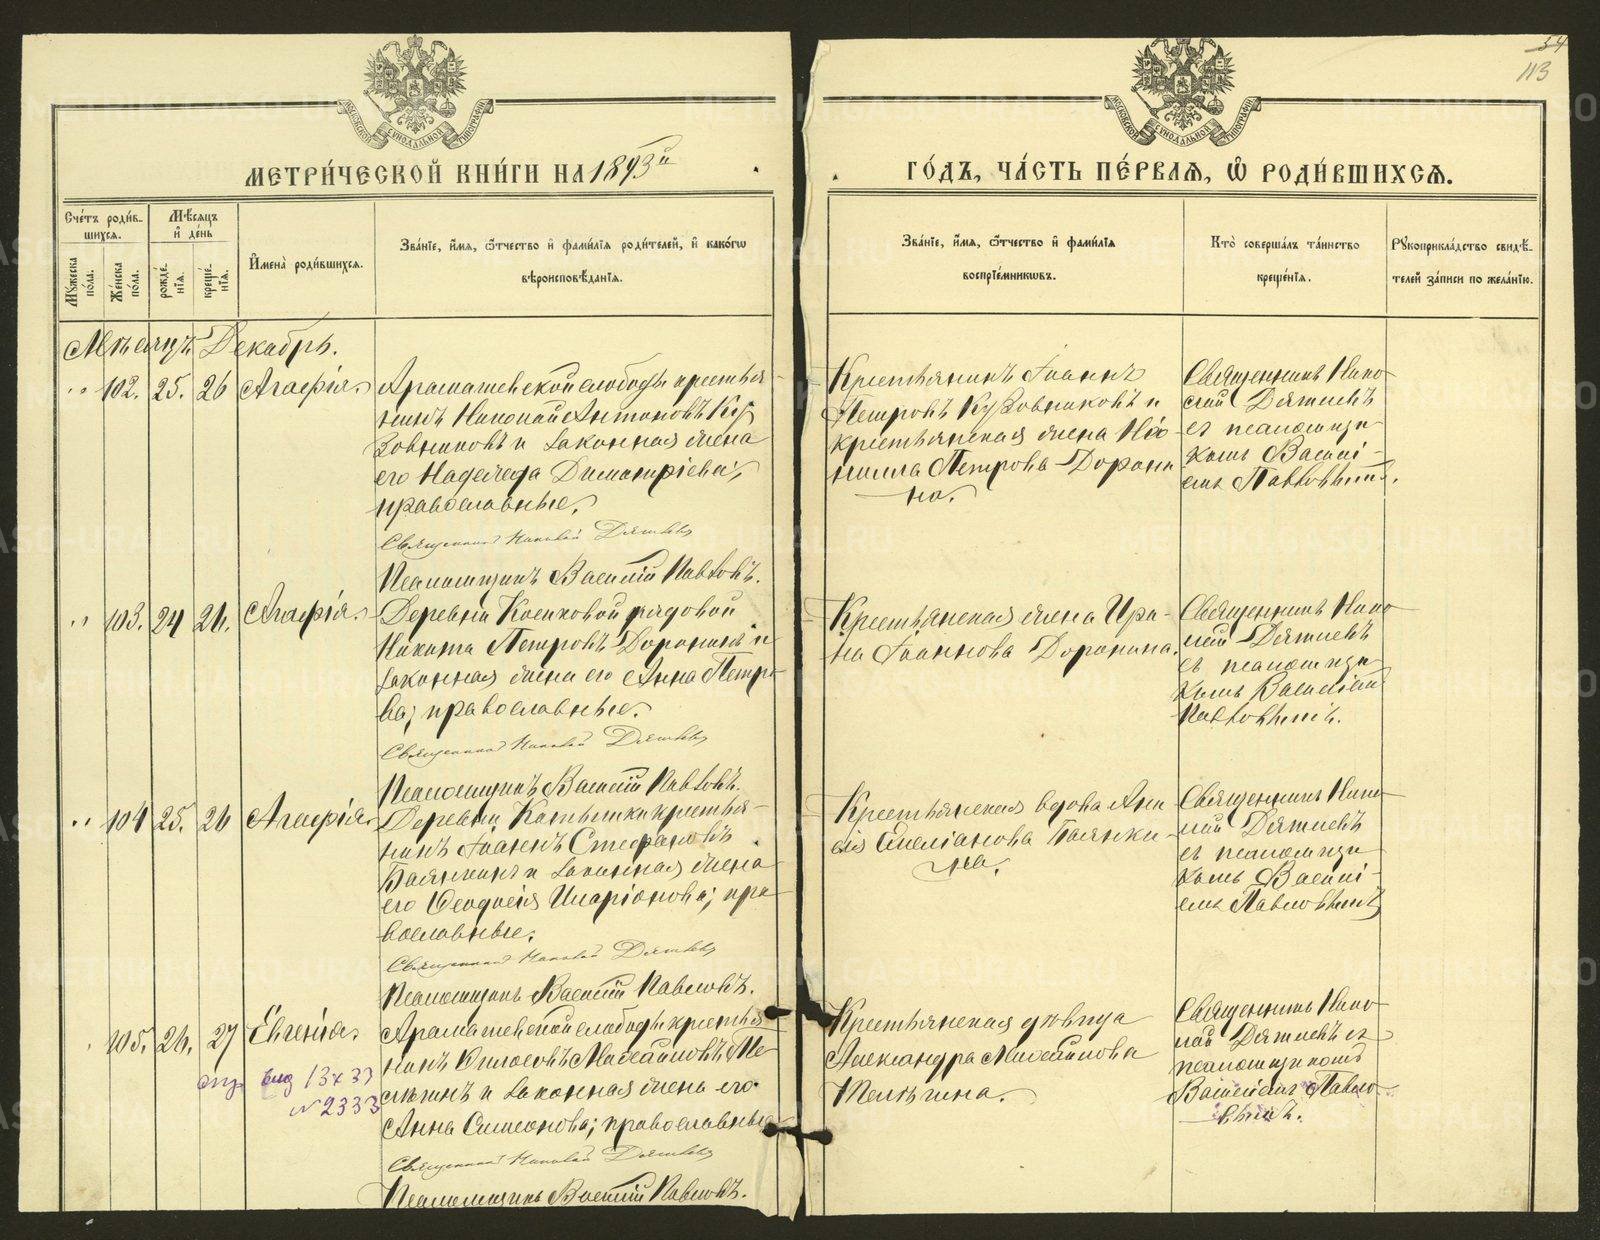 54
113
МОСКОВСКОЙ СѴНОДАЛЬНОЙ ТИПОГРАФІИ
МОСКОВСКОЙ СѴНОДАЛЬНОЙ ТИПОГРАФІИ
МЕТРИ́ЧЕСКОЙ КНИ́ГИ НА 1893й
ГО́ДЪ, ЧА́СТЬ ПЕ́РВАѦ, Ѽ РОДИ́ВШИХСѦ.
Сче́тъ роди́в-
шихсѧ.
Мѣ́сѧцъ
и҆ де́нь
И҆мена̀ роди́вшихсѧ.
Зва́нїе, и҆́мѧ, ѻ҆́тчество и҆ фамі́лїѧ роди́телей, и҆ како́гѡ
вѣроисповѣ́данїѧ.
Мꙋ́жеска по́ла.
Же́нска по́ла.
рожде́-
нїѧ.
креще́-
нїѧ.
Зва́нїе, и҆́мѧ, ѻ҆́тчество и҆ фамі́лїѧ
воспрїе́мникѡвъ.
Кто̀ соверша́лъ та́инство
креще́нїѧ.
Рꙋкоприкла́дство свидѣ́-
телей за́писи по жела́нїю.
Мѣсяцъ Декабрь.
" 102. 25. 26 Агафія.
Арамашевской слободы крестья-
нинъ Николай Антоновъ Ку-
зовниковъ и законная жена
его Надежда Димитріева;
православные.
Священникъ Николай Дягилевъ
Псаломщикъ Василій Павловъ.
Крестьянинъ Іоаннъ
Петровъ Кузовниковъ и
крестьянская жена
Петрова Доронина.
Священникъ Нико-
лай Дягилевъ
съ псаломщи-
комъ Василі-
емъ Павловымъ.
" 103. 24 26. Агафія.
Деревни Косиковой рядовой
Никита Петровъ Доронинъ и
законная жена его Анна Петро-
ва; православные.
Священникъ Николай Дягилевъ
Псаломщикъ Василій Павловъ.
Крестьянская жена Ири-
на Іоаннова Доронина.
Священникъ Нико-
лай Дягилевъ
съ псаломщи-
комъ Василіемъ
Павловымъ.
" 104 25. 26 Агафія.
Деревни крестья-
нинъ Іоаннъ Стефановъ
и законная жена
его Ѳеодосія Иларіонова; пра-
вославные.
Священникъ Николай Дягилевъ
Псаломщикъ Василій Павловъ.
Крестьянская вдова
Емеліанова
на.
Священникъ Нико-
лай Дягилевъ
съ псаломщи-
комъ Василі-
емъ Павловымъ
105. 26. 27 Евгенія.
13 X 33
№ 2333
Арамашевской слободы крестья-
нинъ Михайловъ Те-
лѣгинъ и законная жена его
Анна Симеонова; православные
Священникъ Николай Дягилевъ
Псаломщикъ Василій Павловъ.
Крестьянская дѣвица
Александра Михайлова
Телѣгина.
Священникъ Нико-
лай Дягилевъ съ
псаломщикомъ
Василіемъ Павло-
вымъ.